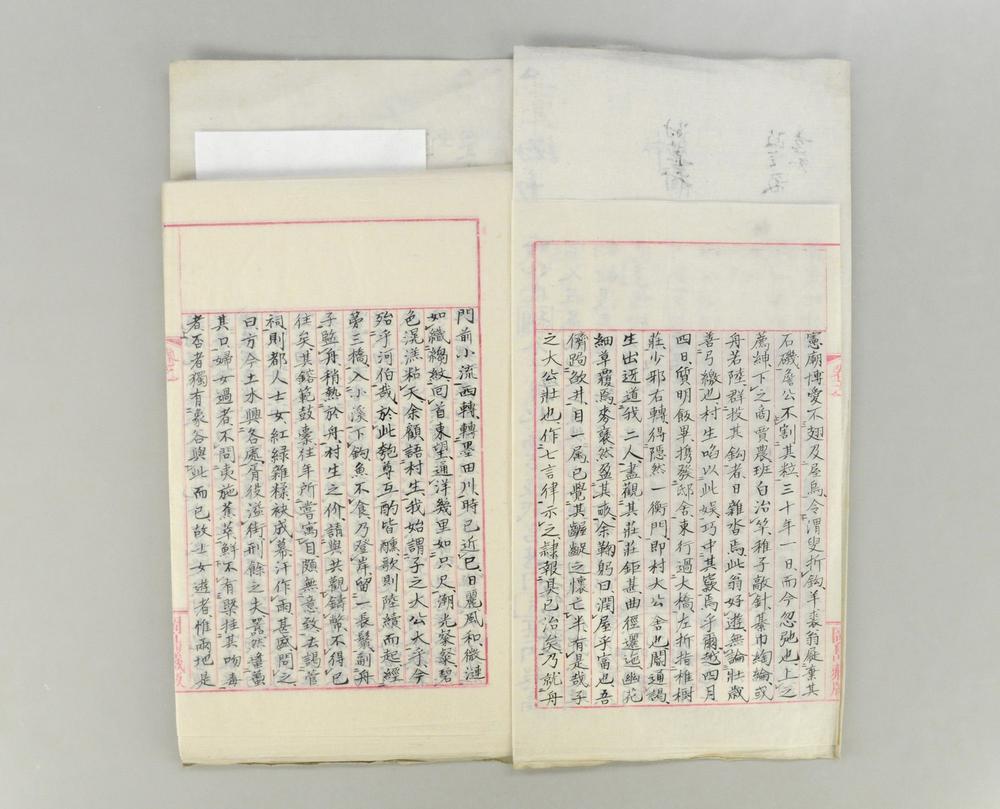 憲廟博愛不翅及屋烏令渭叟折鈎羊裘翁屣棄其
石磯魯公不割其粒三十年一日而今忽弛也上之
薦紳下之商賈農班白治竿稚子敲針綦巾綯綸或
舟若陸群投其鈎者日雜沓焉此翁好遊無論壯歲
善弓繳也村生啗以此娯巧中其竅焉乎爾越四月
四日質明飯畢携發邸舍東行過大橋左折指椎樹
莊少邪右轉得隠然一衡門即村大公舍也閽通謁
生出迓道我二人盡觀其莊莊鉅甚曲徑還迤幽花
細草覆焉麥襄然盈其畝余鞠躬曰潤屋乎富也吾
儕跼歛井目一属已覺其齷齪之懷亡半有是哉子
之大公壯也作七言律示之隷報具已治矣乃就舟
門前小流西轉轉墨田川時已近巳日麗風和微漣
如織縐紋回首東望通洋幾里如只尺潮光粲粲碧
色滉漾粘天余顧語村生我始謂子之大公大乎今
殆乎河伯哉於此匏尊互酌皆醺歌則陸續而起經
第三橋入小溪下鈎魚不食乃登岸留一長鬚副舟
子監舟稍熱於舟村生之价請與共觀鋳幣不得已
往矣其鎔範鼓橐往年所嘗寓目頗無意致去謁菅
祠則都人士女紅緑雜糅袂成幕汗作雨甚盛問之
曰方今土木興各處胥役溢街刑餘之夫嚣然蠢蠢
其只婦女過者不問夷施蕉萃鮮不有槩挂其吻毒
者否者獨有象谷與此而已故士女遊者惟兩地是
卷之